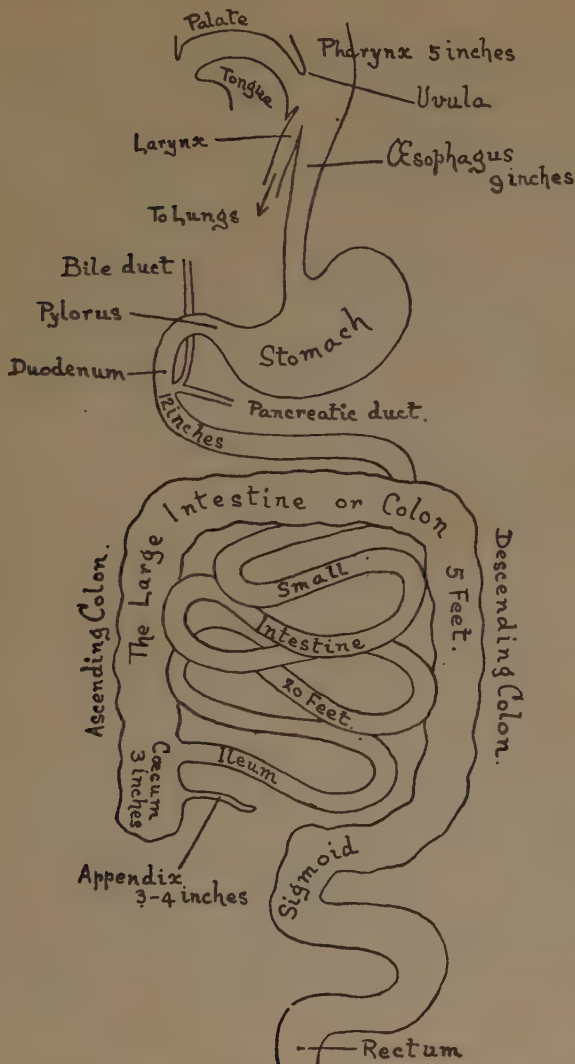 Palate
Pharynx 5 inches
Tongue
Uvula
Larynx
Œsophagus
9 inches
To Lungs
Bile duct
Pylorus
Stomach
Duodenum
12 inches
Pancreatic duct.
The Large Intestine or Colon
5 Feet.
Ascending Colon.
Descending Colon.
Small
Intestine
20 Feet.
Ileum
Cœcum
3 inches
Appendix
3-4 inches
Sigmoid
Rectum